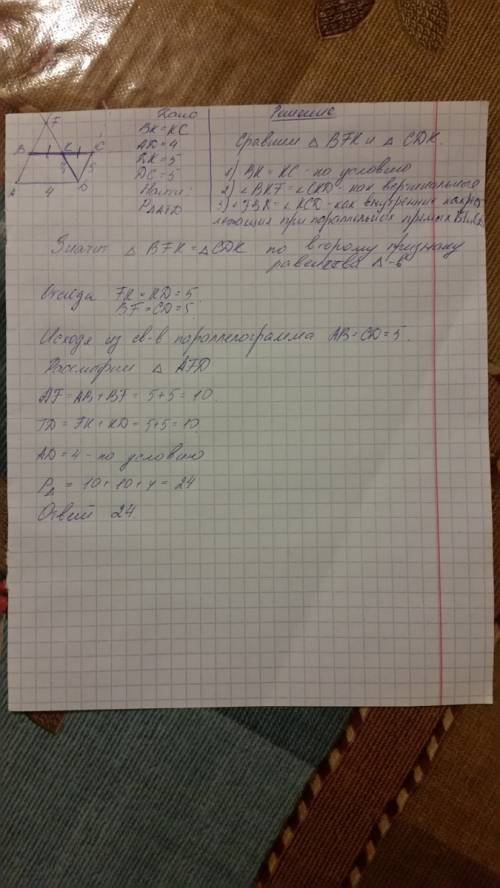 F
B K C
5 5
A 4 D
Дано
BK = KC
AD = 4
DK = 5
DC = 5
Найти:
P△AFD
Решение
Сравним △ BFK и △ CDK.
1) BK = KC - по условию
2) ∠BKF = ∠CKD - как вертикальные
3) ∠FBK = ∠KCD - как внутренние накрест
лежащие при параллельных прямых
Значит △ BFK = △CDK по второму признаку
равенства △-в
Отсюда FK = KD = 5.
BF = CD = 5.
Исходя из св-в параллелограмма AB = CD = 5.
Рассмотрим △ AFD
AF = AB + BF = 5+5 = 10.
FD = FK + KD = 5+5 = 10
AD = 4 - по условию
P△ = 10 + 10 + 4 = 24
Ответ 24.